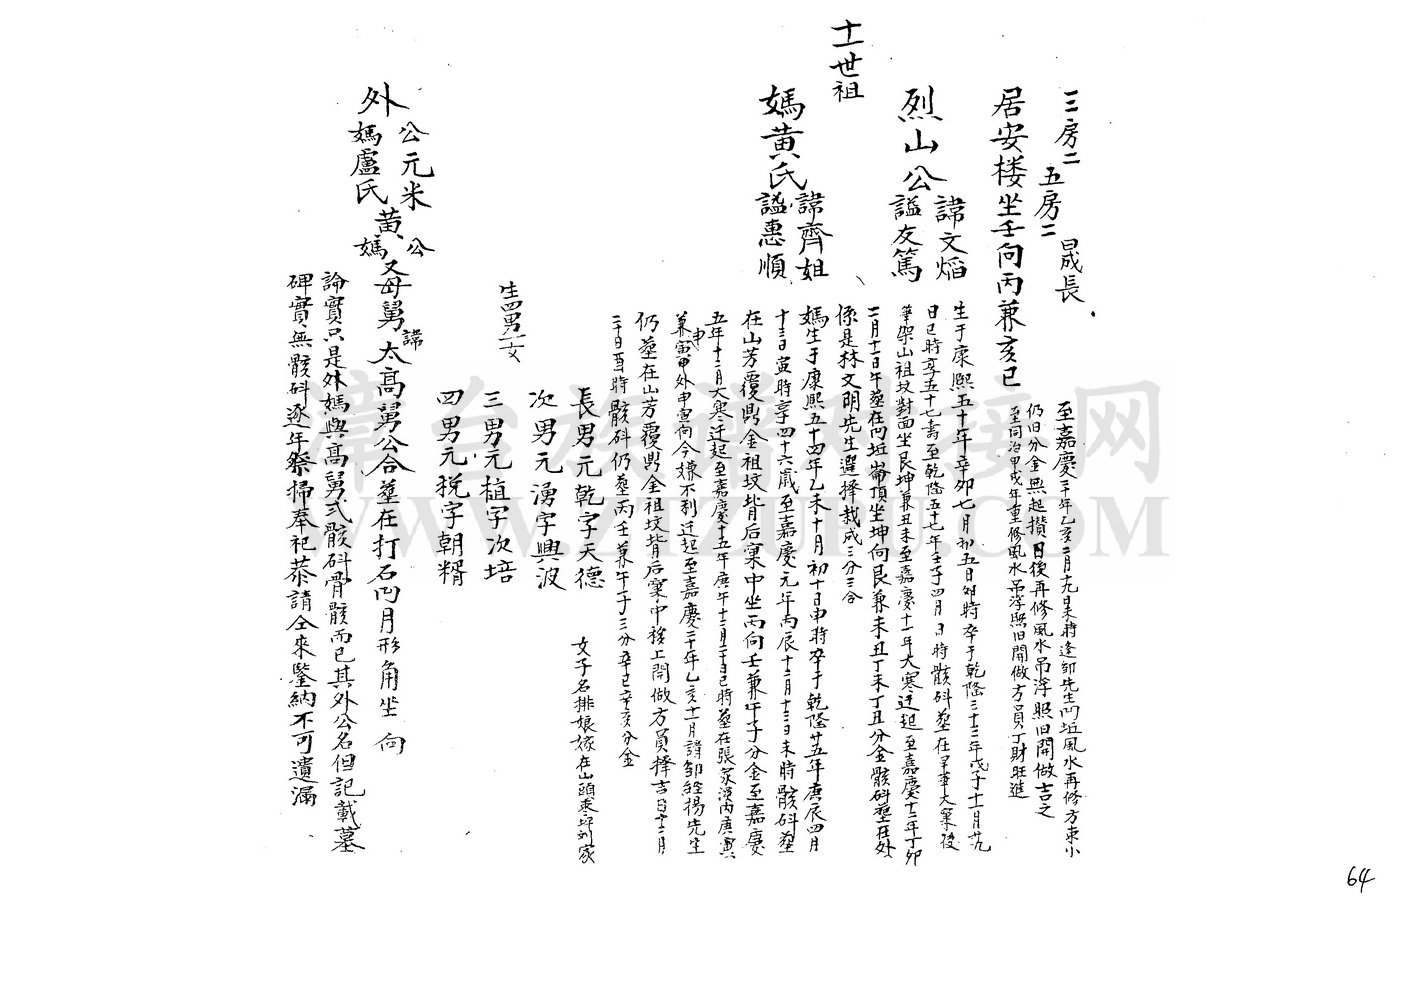 三房二
五房二
晸長
居安楼坐壬向丙兼亥巳
至嘉慶二十年乙亥二月十九日未時逢邹先生凹坵風水再修方東小
仍旧分金無起攅日後再修風水吊浮照旧開做吉之
至同治甲戌年重修風水吊浮照旧開做方員丁財旺進
烈山公
諱文熖
謚友篤
生于康熙五十年辛卯七月初五日卯時卒于乾隆三十三年戊子十一月廿九
日巳時享五十七壽至乾隆五十七年壬子四月 日時骸科塟在 華大窠後
筆架山祖坟對面坐艮坤兼丑未至嘉慶十一年大寒迁起至嘉慶十二年丁卯
二月十二日午塟在凹坵崙頂坐坤向艮兼未丑丁未丁丑分金骸科塟在外
係是林文明先生選擇裁成三分三合
十一世祖
媽黄氏
諱齊姐
謚惠順
媽生于康熙五十四年乙未十月初十日申時卒于乾隆廿五年庚辰四月
十三日寅時享四十六歲至嘉慶元年丙辰十二月十三日未時骸科塟
在山芳覆鼎金祖坟背后窠中坐丙向壬兼午子分金至嘉慶
五年十二月大寒迁起至嘉慶十五年庚午十二月二十日巳時塟在張家 内庚寅
兼寅申外申寅向今嫌不利迁起至嘉慶二十年乙亥十一月請邹銓揚先生
仍塟在山芳覆鼎金祖坟背后窠中移上開做方員擇吉 十二月
二十日酉時骸科仍塟丙壬兼午子三分辛巳辛亥分金
生四男一女
長男元乾字天德
次男元湧字興波
三男元植字次培
四男元税字朝糈
女子名排娘嫁在山頭 坪刘家
外
公元米
媽盧氏
黄
公
媽
又母舅
諱
太高舅公合塟在打石凹月形角坐 向
論實只是外媽與高舅弍骸科骨骸而已其外公名但記載墓
碑實無骸科逐年祭掃奉祀恭請仝來鑒納不可遺漏
64
漳台族譜对接网
WWW.ZTZUPU.COM